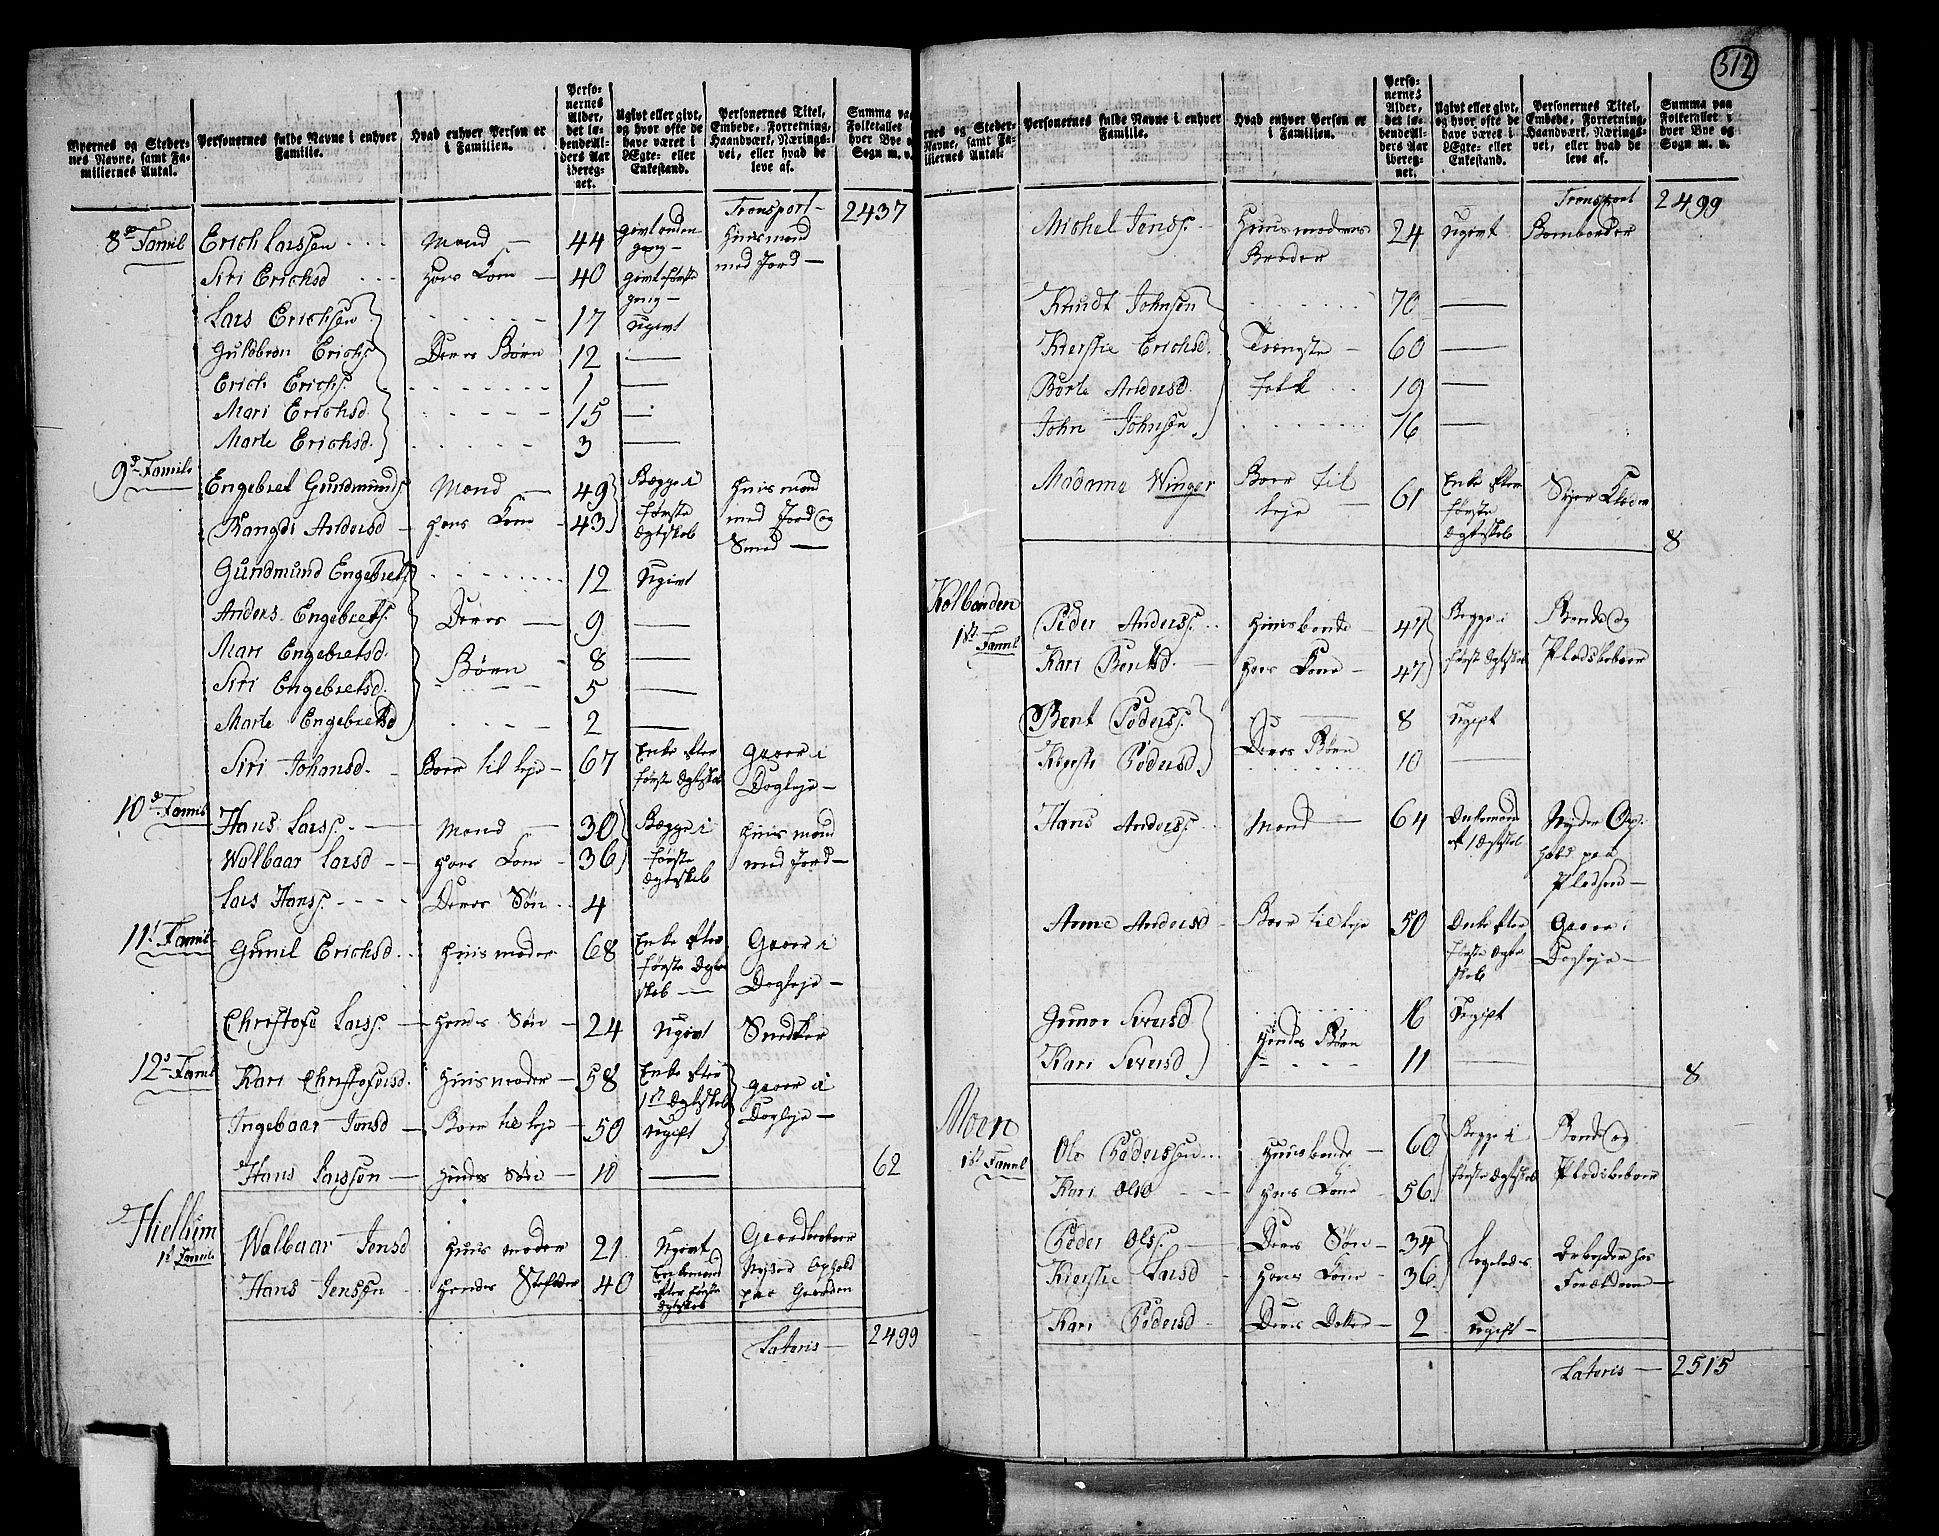 312
Byernes og Steder-
nes Navne, samt Fa-
miliernes Antal.
Personernes fulde Navne i enhver
Familie.
Hvad enhver Person er
i Familien.
Perso-
nernes
Alder,
det lø-
bende Al-
ders Aar
ibereg-
net.
Ugivt eller givt,
og hvor ofte de
have været i
Ægte- eller
Enkestand.
Personernes Titel,
Embede, Forretning,
Haandværk, Nærings-
vei, eller hvad de
leve af.
Summa paa
Folketallet i
hver Bye og
Sogn m. v.
Transport 2437
8de Famil Erich Larssen Mand 44 Givt anden gang Huusmand med Jord
Siri Erichsd Hans Kone 40 Givt første gang
Lars Erichsen 17 Ugivt
Guldbran Erichs. Deres Børn 12 —
Erich Erichs. 1 —
Mari Erichsd. 15 —
Marte Erichsd. 3 —
9de Famile Engebret Gundmunds. Mand 49 Begge i første Ægteskab Huusmand med Jord og Smed
Rangdi Andersd Hans Kone 43
Gundmund Engebrets. 12 Ugivt
Anders Engebrets. Deres 9 —
Mari Engebretsd. Børn 8 —
Siri Engebretsd. 5 —
Marte Engebretsd 2 —
Siri Johansd. Boer til leje 67 Enke efter første Ægteskab Gaaer i Dagleje
10de Famile Hans Larss. Mand 30 Begge i første Ægteskab Huusmand med Jord
Walbaar Larsd Hans Kone 36
Lars Hanss. Deres Søn 4
11te Famile Gunil Erichsd. Huusmoder 68 Enke efter første Ægteskab Gaaer i Dagleje
Christofe Larss. Hendes Søn 24 Ugivt Snedker
12te Famil Kari Christofersd. Huusmoder 58 Enke efter 1ste Ægteskab Gaaer i Dagleje
Ingebaar Jonsd Boer til leje 50 Ugift
Hans Larssen Hendes Søn 10 — 62
Hielbim
1st Famile Walbaar Jensd Huusmoder 21 Ugivt Gaardbeboer
Hans Jenssen Hendes Stefader 40 Enkemand efter første Ægteskab Nyder Ophold paa Gaarden
Lateris 2499
nes og Steder-
Navne, samt Fa-
iliernes Antal.
Personernes fulde Navne i enhver
Familie.
Hvad enhver Person er
i Familien.
Perso-
nernes
Alder,
det lø-
bende Al-
ders Aar
ibereg-
net.
Ugivt eller givt,
og hvor ofte de
have været i
Ægte- eller
Enkestand.
Personernes Titel,
Embede, Forretning,
Haandværk, Nærings-
vei, eller hvad de
leve af.
Summa paa
Folketallet i
hver Bye og
Sogn m. v.
Transport 2499
Michel Jenss. Huusmoderens Broder 24 Ugivt
Knudt Johnsen 70 —
Kierstie Erichsd. Tieneste 60 —
Borte Andersd. folk 19 —
John Johnsen 16 —
Madame Winger Boer til leje 61 Enke efter første Ægteskab Syer Klæder
8
Kolbanden
1st Famil Peder Anderss. Huusbonde 47 Begge i første Ægteskab Bonde og Pladsbeboer
Kari Bentsd. Hans Kone 47
Bent Pederss. Deres Børn 8 Ugift
Kierste Pedersd. 10 —
Hans Anderss. Mand 64 Enkemand af 1 Ægteskab Nyder Op-
hold paa
Pladsen
Anne Andersd Boer til leje 50 Enke efter første Ægteskab Gaaer i Dagleje
Gunor Iversd Hendes Børn 16 Ugift
Kari Iversd 11 —
8
Moen
1st Famil Ole Pederssen Huusbonde 60 Begge i første Ægteskab Bonde og Pladsbeboer
Kari Olsd Hans Kone 56
Peder Olss. Deres Søn 34 Arbejder hos Forældrene
Kierstie Larsd Hans Kone 36
Kari Pedersd Deres Datter 2 Ugift
Lateris 2515